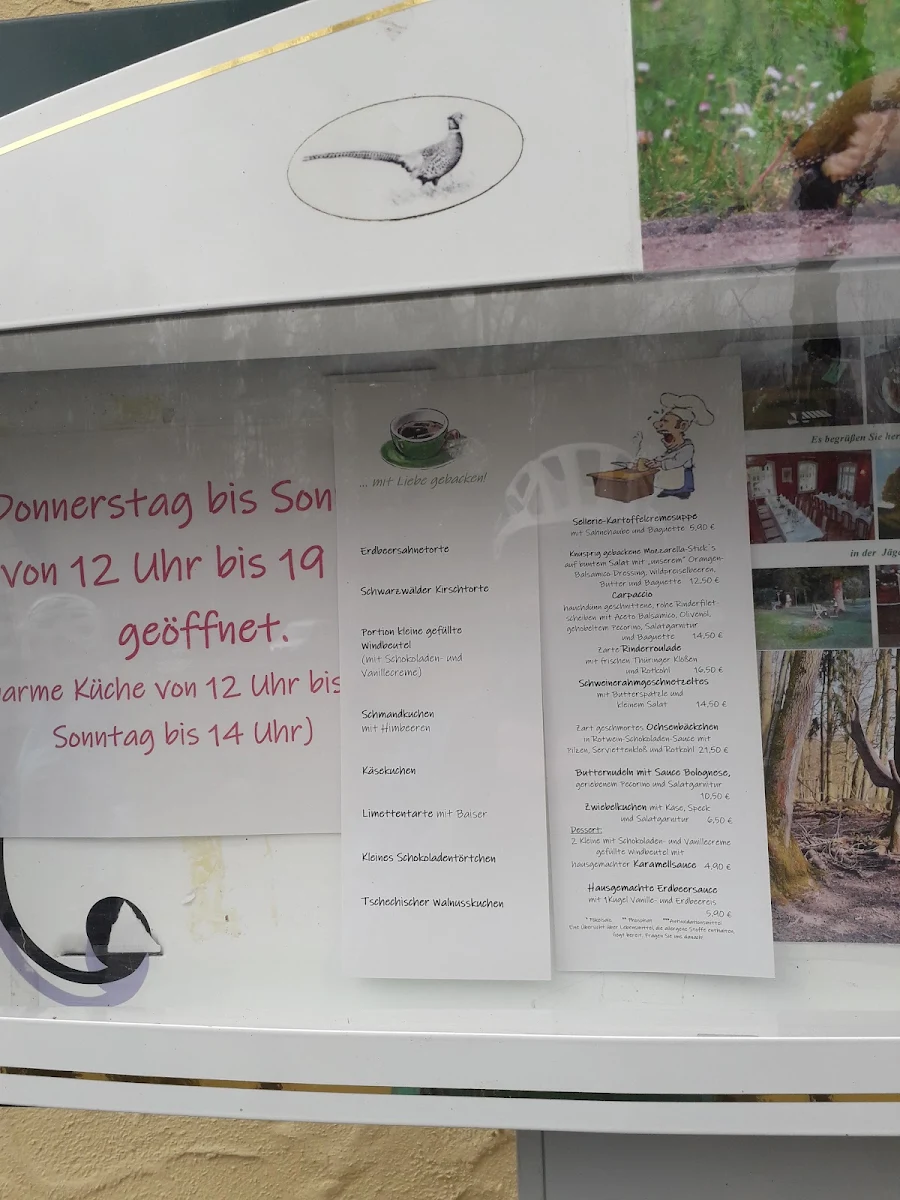 Donnerstag bis Son
von 12 Uhr bis 19
geöffnet.
arme Küche von 12 Uhr bis
Sonntag bis 14 Uhr)
... mit Liebe gebacken!
Erdbeersahnetorte
Schwarzwälder Kirschtorte
Portion kleine gefüllte
Windbeutel
(mit Schokoladen- und
Vanillecreme)
Schmandkuchen
mit Himbeeren
Käsekuchen
Limettentarte mit Baiser
Kleines Schokoladentörtchen
Tschechischer Walnusskuchen
Sellerie-Kartoffelcremesuppe
mit Sahnehaube und Baguette 5,90 €
Knusprig gebackene Mozzarella-Stick´s
auf buntem Salat mit „unserem" Orangen-
Balsamico Dressing, Wildpreiselbeeren,
Butter und Baguette 12,50 €
Carpaccio
hauchdünn geschnittene, rohe Rinderfilet-
scheiben mit Aceto Balsamico, Olivenöl,
gehobeltem Pecorino, Salatgarnitur
und Baguette 14,50 €
Zarte Rinderroulade
mit frischen Thüringer Klößen
und Rotkohl 16,50 €
Schweinerahmgeschnetzeltes
mit Butterspätzle und
kleinem Salat 14,50 €
Zart geschmortes Ochsenbäckchen
in Rotwein-Schokoladen-Sauce mit
Pilzen, Serviettenkloß und Rotkohl 21,50 €
Butternudeln mit Sauce Bolognese,
geriebenem Pecorino und Salatgarnitur
10,50 €
Zwiebelkuchen mit Käse, Speck
und Salatgarnitur 6,50 €
Dessert:
2 Kleine mit Schokoladen- und Vanillecreme
gefüllte Windbeutel mit
hausgemachter Karamellsauce 4,90 €
Hausgemachte Erdbeersauce
mit 1 Kugel Vanille- und Erdbeereis
5,90 €
Eine Übersicht über Lebensmittel, die allergene Stoffe enthalten
liegt bereit. Fragen Sie uns danach!
Es begrüßen Sie her
in der Jäge